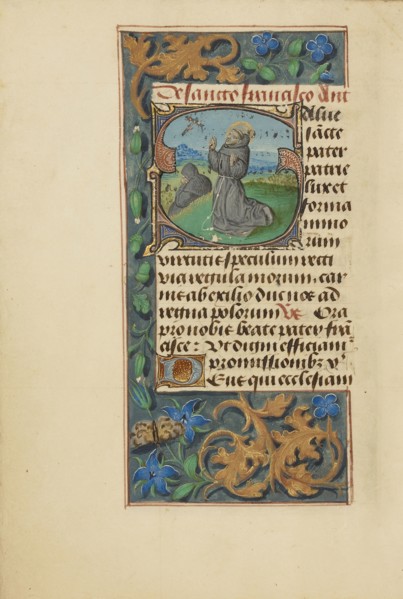 De sancto francisco Ant
Salue
sācte
pater
patrie
lux et
forma
mino
rum
virtutis speculum recti
via regula morum. car
nis ab exilio duc nos ad
regna polorum Vs Ora
pro nobis beate pater frā
cisce: Ut digni efficiam
promissionibꝫ xp̄i
Deus qui ecclesiam